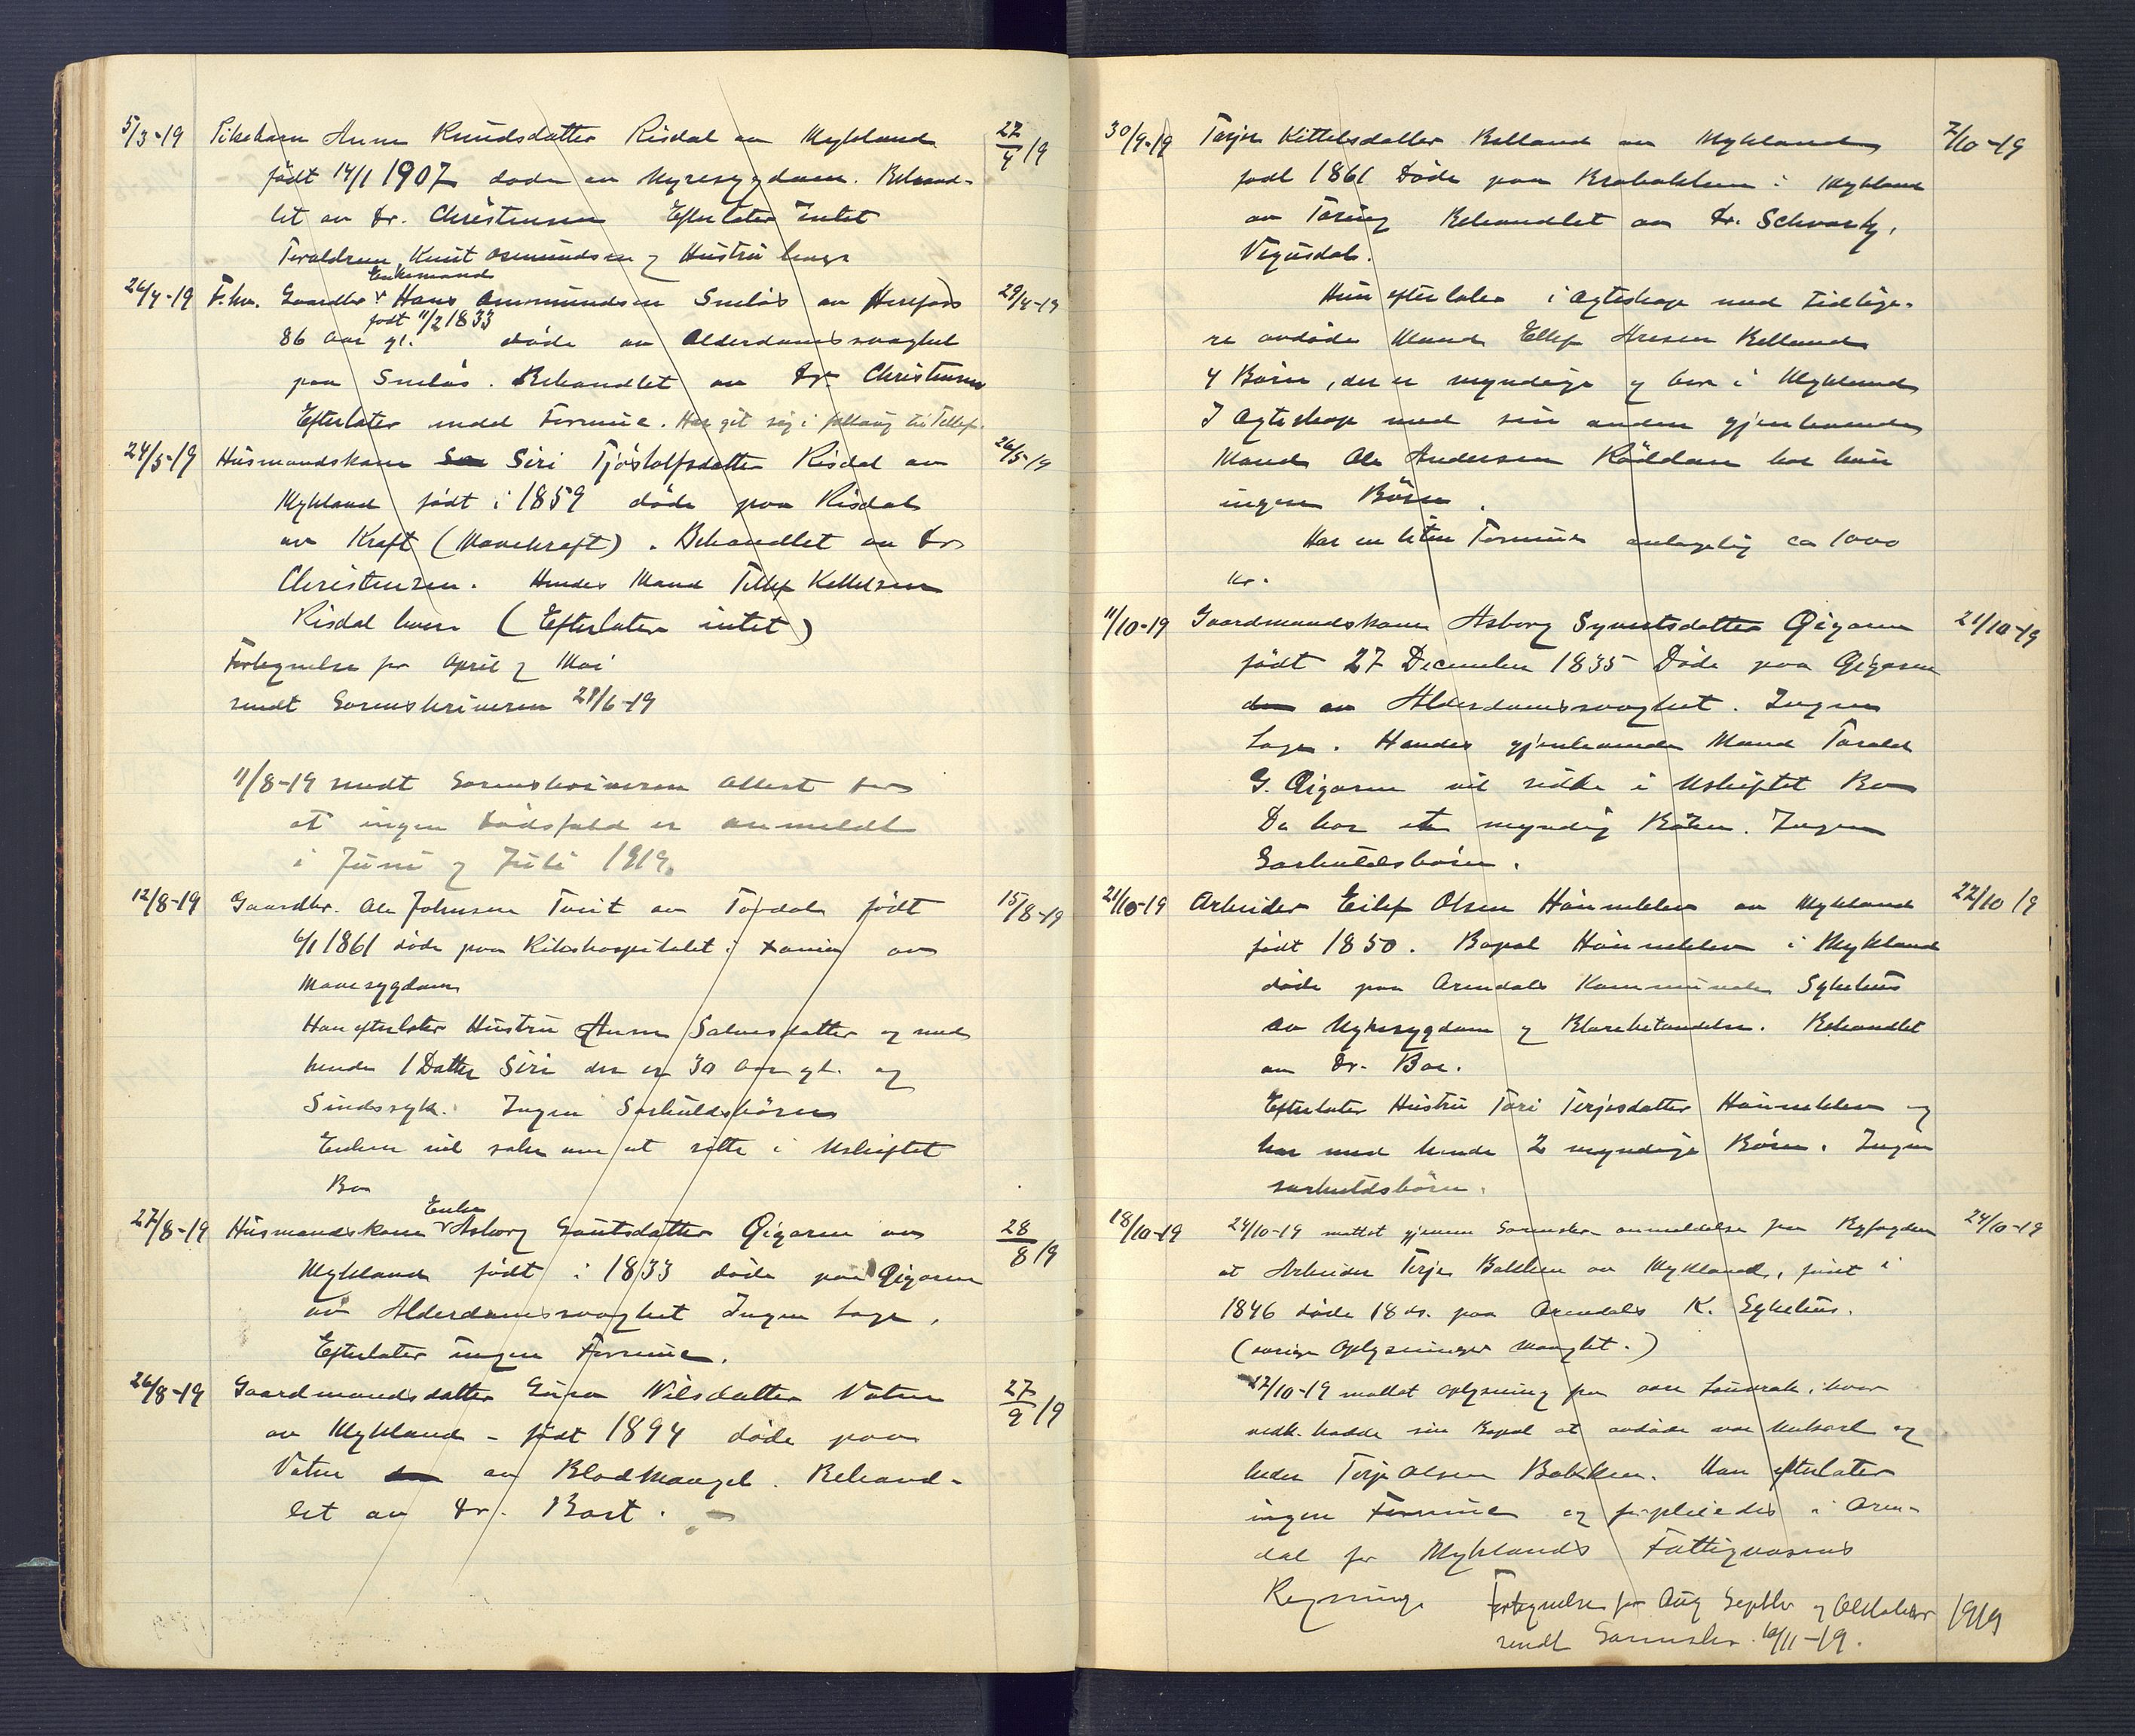 5/3-19 Pikebarn Anne Knudsdatter Risdal av Mykland 27/4 19
født 14/1 1907 døde av Nyresygdom. Behand-
let av Dr. Christensen Efterlater Intet
Forældrene Knut Osmundsen og Hustru lever
Enkemand
26/4-19 F.hv. Gaardbr Hans Ommundsen Snelås av Herefoss 29/4-19
født 11/2 1833
86 Aar gl. døde av Alderdomssvaghet
paa Snelås. Behandlet av Dr Christensen
Efterlater endel Formue. Har git sig i follaug til Tellef.
24/5-19 Husmandskone Siri Tjøstolfsdatter Risdal av 26/5-19
Mykland født i 1859 døde paa Risdal
av Kræft (Mavekræft). Behandlet av Dr
Christensen. Hendes Mand Tellef Kettelsen
Risdal lever (Efterlater intet)
Fortegnelse for April og Mai
sendt Sorenskriveren 28/6-19
11/8-19 sendt Sorenskriveren Attest for
at ingen Dødsfald er anmeldt
i Juni og Juli 1919.
12/8-19 Gaardbr. Ole Johnsen Tveit av Tovdal født 15/8-19
6/1 1861 døde paa Rikshospitalet i Xania av
Mavesygdom
Han efterlater Hustru Anne Salvesdatter og med
hende 1 Datter Siri der er 30 Aar gl. og
Sindssyk. Ingen Særkuldsbörn
Enken vil søke om at sitte i Uskiftet
Bo
Enke
27/8-19 Husmandskone Asborg Gautsdatter Øigaren av 28/8 19
Mykland født i 1833 døde paa Øigaren
av Alderdomssvaghet Ingen Læge.
Efterlater ingen Formue.
26/8-19 Gaardmandsdatter Nilsdatter Vatne 27/9 19
av Mykland - født 1894 døde paa
Vatne av Blodmangel. Behand-
let av Dr.
30/9-19 Kittelsdatter Belland av Mykland 7/10-19
født 1861 Døde paa i Mykland
av Tæring Behandlet av Dr. Schwartz,
Vegusdal.
Hun efterlater i Ægteskap med tidlige-
re avdøde Mand Ellef Aresen Belland
4 Börn, der er myndige og bor i Mykland
I Ægteskap med sin anden gjenlevende
Mand Ole Andersen har hun
ingen Börn.
Har en liten Formue antagelig ca 1000
kr.
11/10-19 Gaardmandskone Asborg Syvertsdatter Øigaren 21/10-19
født 27 December 1835 Døde paa Øigaren
av Alderdomssvaghet. Ingen
Læge. Hendes gjenlevende Mand Tarald
G. Øigaren vil sidde i Uskiftet Bo
De har et myndig Barn. Ingen
Særkuldsbörn.
21/10-19 Arbeider Eilef Olsen Haünekleiv av Mykland 22/10 19
født 1850. Bopæl Haünekleiv i Mykland
døde paa Arendals Kommunale Sykehus
av Nyresygdom og Blærebetændelse. Behandlet
av Dr. Boe.
Efterlater Hustru Tori Terjesdatter Haünekleiv og
har med hende 2 myndige Börn. Ingen
særkuldsbörn.
18/10-19 24/10-19 mottat gjennem Sorenskr. anmeldelse fra Byfogden 24/10-19
at Arbeider Terje Bakken av Mykland, født i
1846 døde 18 ds. paa Arendals K. Sykehus.
(øvrige Oplysninger Manglet.)
27/10-19 mottat oplysning fra hvor
vedk. hadde sin Bopæl at avdøde var Unkarl og
heder Terje Olsen Bakken. Han efterlater
ingen Formue og forpleiedes i Aren-
dal for Myklands Fattigvæsens
Regning. Fortegnelse for Aug Septbr og Oktober 1919
sendt Sorenskr. 10/11-19.